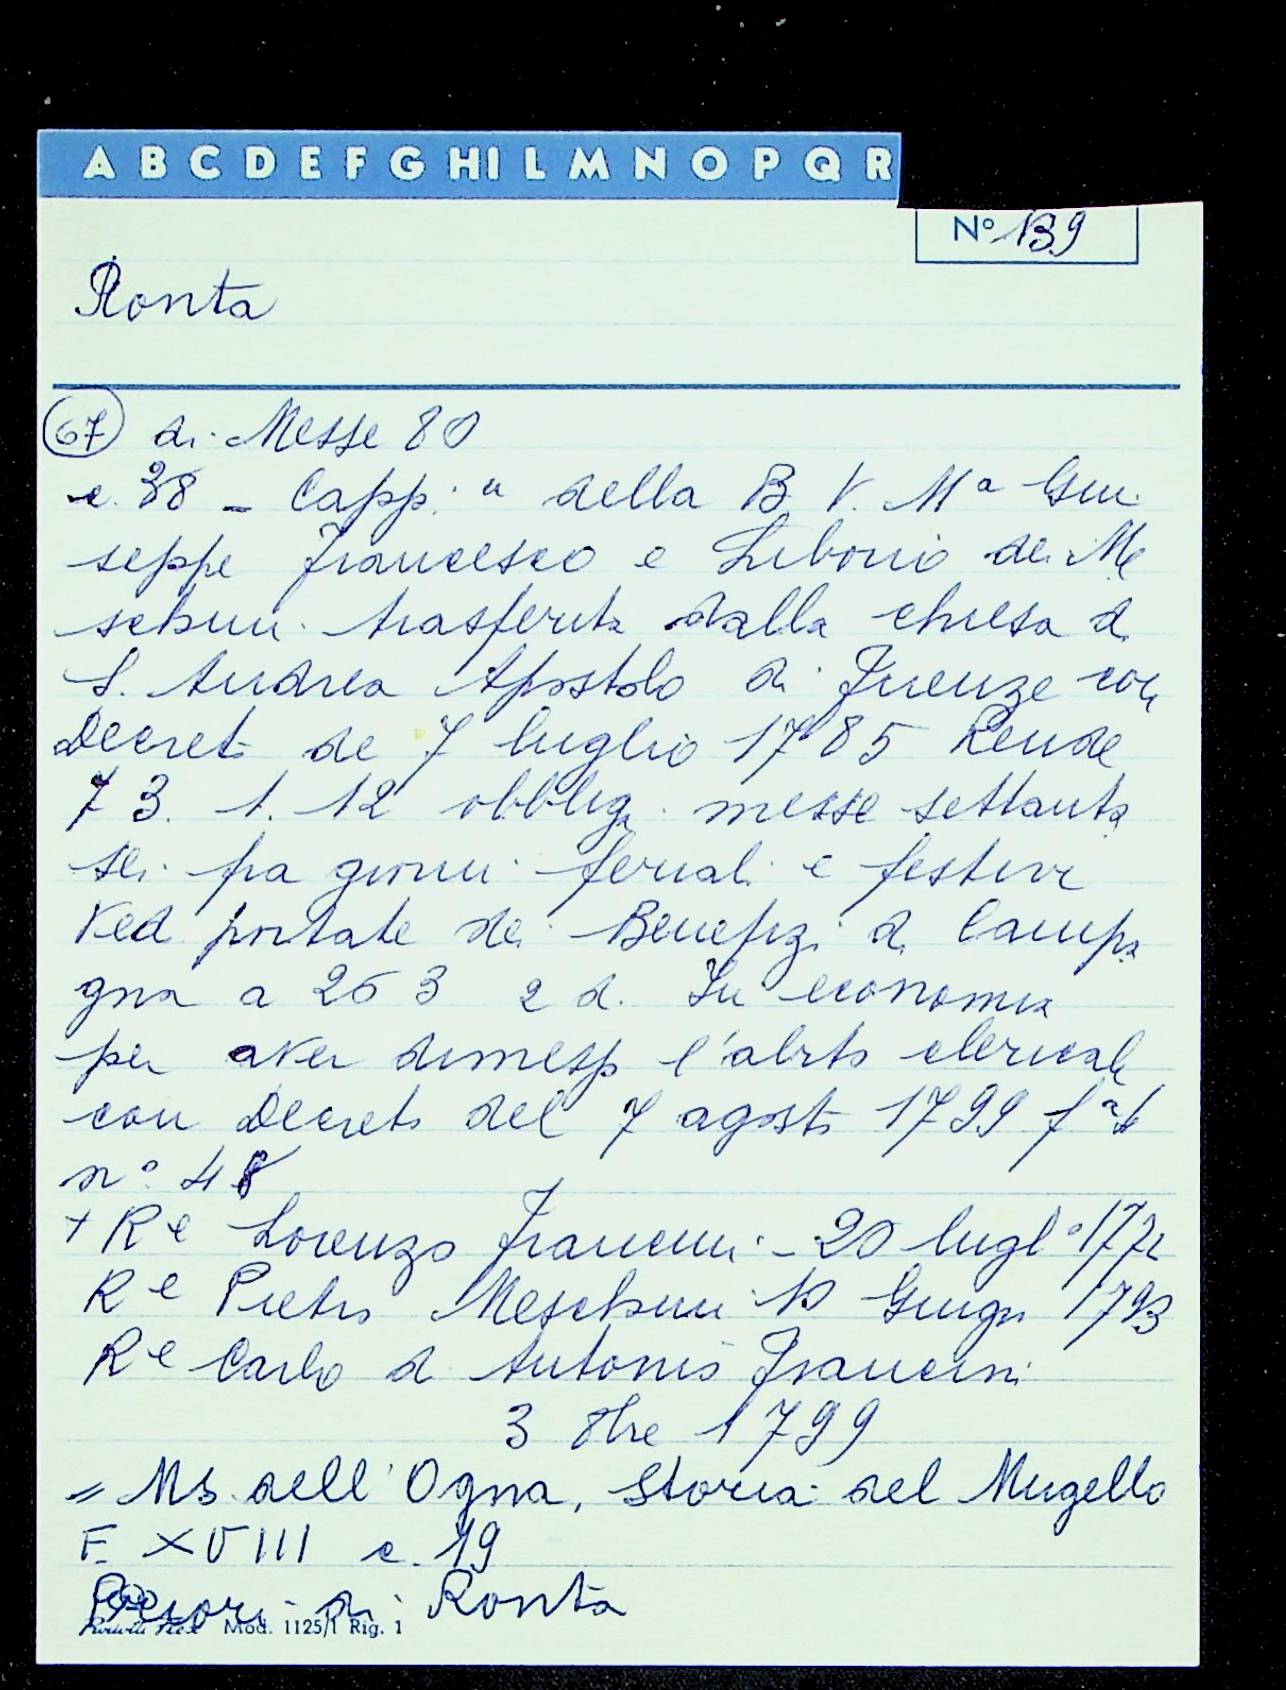 A B C D E F G H I L M N O P Q R
Nº 139
Ronta
67 di Messe 80
c. 38 - Capp.a della B. V. Ma Giu
seppe Francesco e Liborio dei Me
schini trasferita dalla chiesa di
S. Andrea Apostolo di Firenze con
Decreto de 7 luglio 1785 Rende
73. 1. 12 obblig. messe settanta
sei fra giorni feriali e festivi
Ved portate dei Benefizi di Campa
gna a 263 2 d. In economia
per aver dimesso l'abito clericale
con Decreto del 7 agosto 1799 fa
nº 48
+ Re Lorenzo Francini - 20 luglo 1772
Re Pietro Meschini 10 Giugno 1793
Re Carlo di Antonio Francini
3 8bre 1799
= Ms. dell'Ogna, Storia del Mugello
F. XVIII c. 19
di Ronta
Mod. 1125/1 Rig. 1